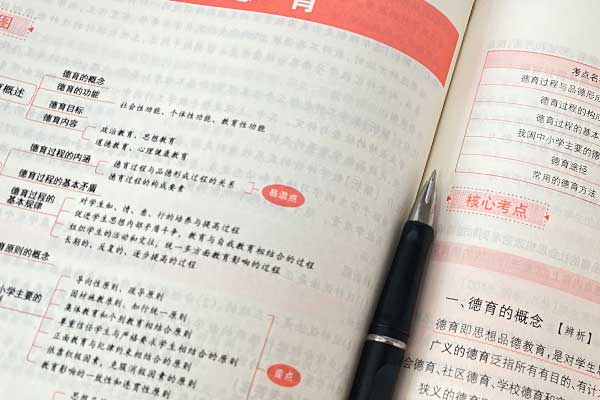 育
图
德育的概念
德育的功能
社会性功能、个体性功能、教育性功能
育概述
德育目标
德育内容
政治教育、思想教育
道德教育、心理健康教育
德育过程的内涵
德育过程与品德形成过程的关系
德育过程的构成要素
易混点
德育过程的基本矛盾
德育过程的
基本规律
对学生知、情、意、行的培养与提高过程
促进学生思想内部矛盾斗争、教育与自我教育相结合的过程
组织学生的活动和交往，统一多方面教育影响的过程
长期的、反复的、逐步提高的过程
育原则的概念
小学主要的
导向性原则、疏导原则
因材施教原则、知行统一原则
集体教育和个别教育相结合的原则
尊重信任学生与严格要求学生相结合的原则
正面教育与纪律约束相结合的原则
依靠积极因素，克服消极因素的原则
教育影响的一致性和连贯性原则
重点
考点名
德育过程与品德形成
德育过程的构成
德育过程的基本
我国中小学主要的德
德育途径
常用的德育方法
核心考点
一、德育的概念 【辨析】
德育即思想品德教育，是对学生
广义的德育泛指所有有目的、有计
会德育、社区德育、学校德育和
狭义的德育